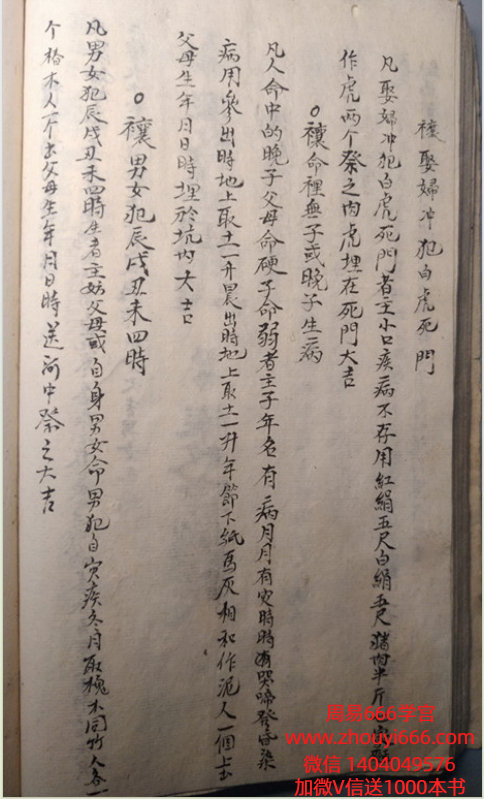 禳娶婦冲犯白虎死門
凡娶婦冲犯白虎死門者主小口疾病不存用紅絹五尺白絹五尺猪肉半斤
作虎两个祭之内虎埋在死門大吉
禳命裡無子或晚子生病
凡人命中的晚子父母命硬子命弱者主子年各有病月月有灾時時有哭啼發昏染
病用參出時地上取土一升晨出時地上取土一升年節下紙馬灰相和作泥人一個上書
父母生年月日時埋於坑内大吉
禳男女犯辰戌丑未四時
凡男女犯辰戌丑未四時生者主妨父母或自身男女命男犯自 疾冬月取槐木同竹人各一
个 木人一个書父母生年月日時送河中祭之大吉
周易666学宫
www.zhouyi666.com
微信 1404049576
加微V信送1000本书